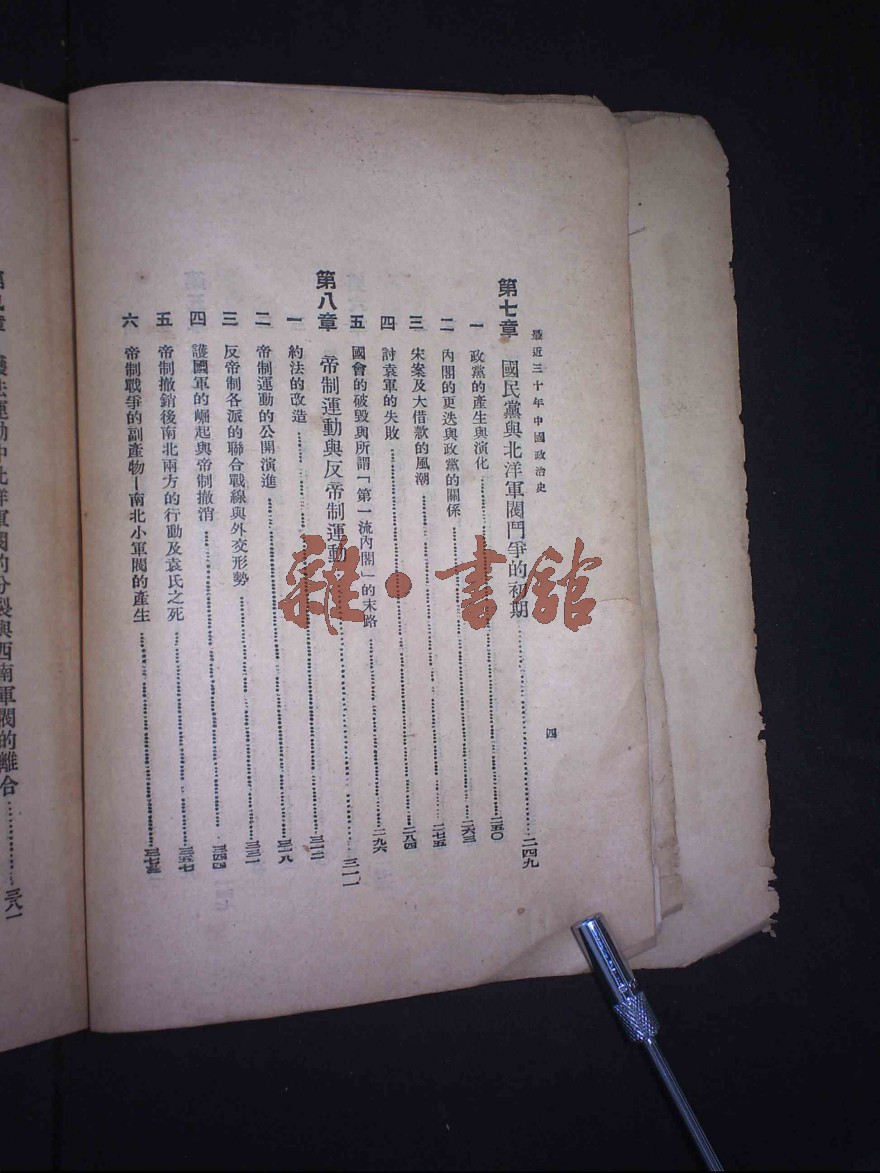 最近三十年中國政治史
四
第七章 國民黨與北洋軍閥鬥爭的初期……二四九
一 政黨的產生與演化……二五〇
二 內閣的更迭與政黨的關係……二六三
三 宋案及大借款的風潮……二七五
四 討袁軍的失敗……二八四
五 國會的破毀與所謂「第一流內閣」的末路……二九六
第八章 帝制運動與反帝制運動……三一一
一 約法的改造……三一二
二 帝制運動的公開演進……三一八
三 反帝制各派的聯合戰線與外交形勢……三三一
四 護國軍的崛起與帝制撤消……三四四
五 帝制撤銷後南北兩方的行動及袁氏之死……三五七
六 帝制戰爭的副產物—南北小軍閥的產生……三七三
第九章 護法運動中北洋軍閥的分裂與西南軍閥的離合……三八一
雜·書館